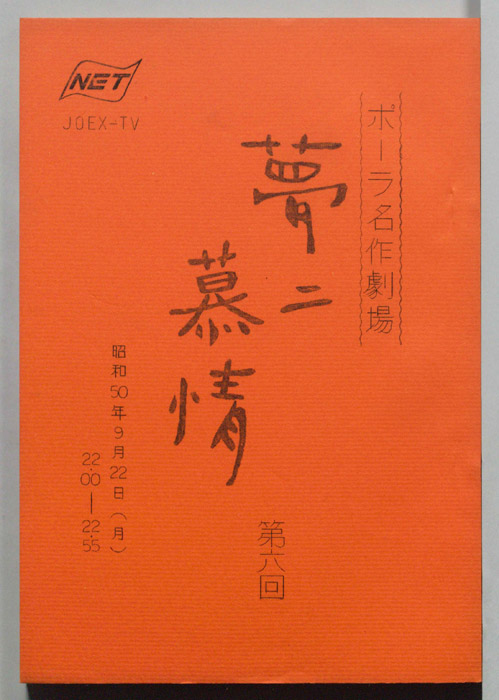 NET
JOEX-TV
ポーラ名作劇場
夢二
慕情
第六回
昭和50年9月22日(月)
22.00―22.55